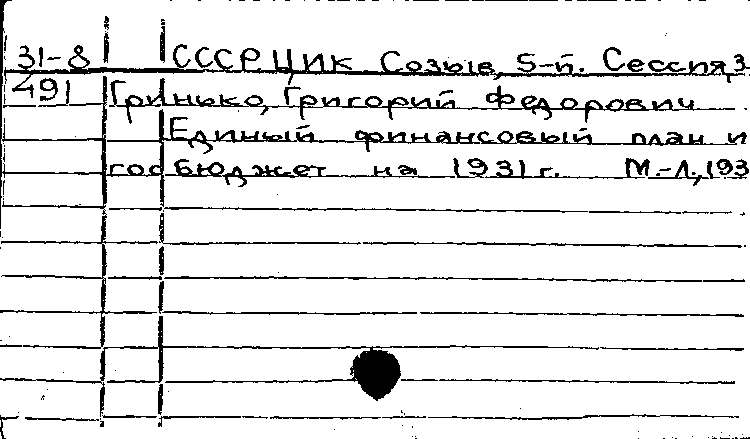 31-8 СССР. ЦИК Созыв, 5-й. Сессия, 3
491 Гринько, Григорий Федорович
Единый финансовый план и
гос бюджет на 1931 г. М.-Л., 193